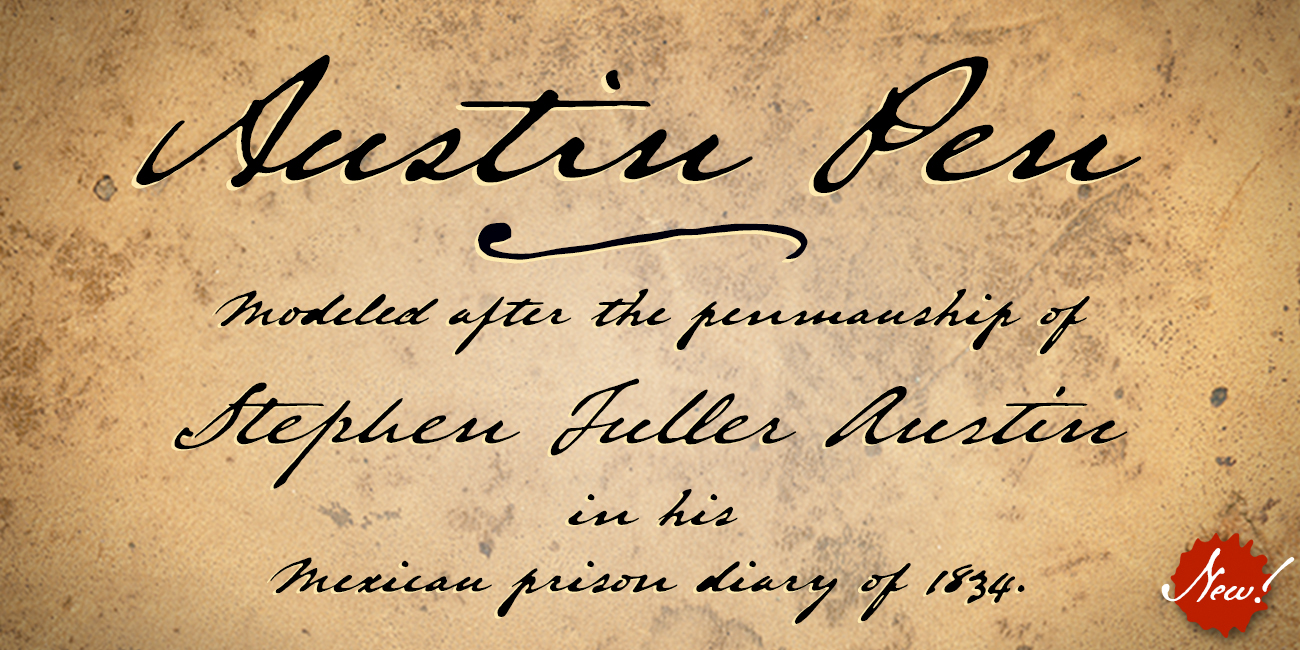 Austin Pen
Modeled after the penmanship of
Stephen Fuller Austin
in his
Mexican prison diary of 1834.
New!